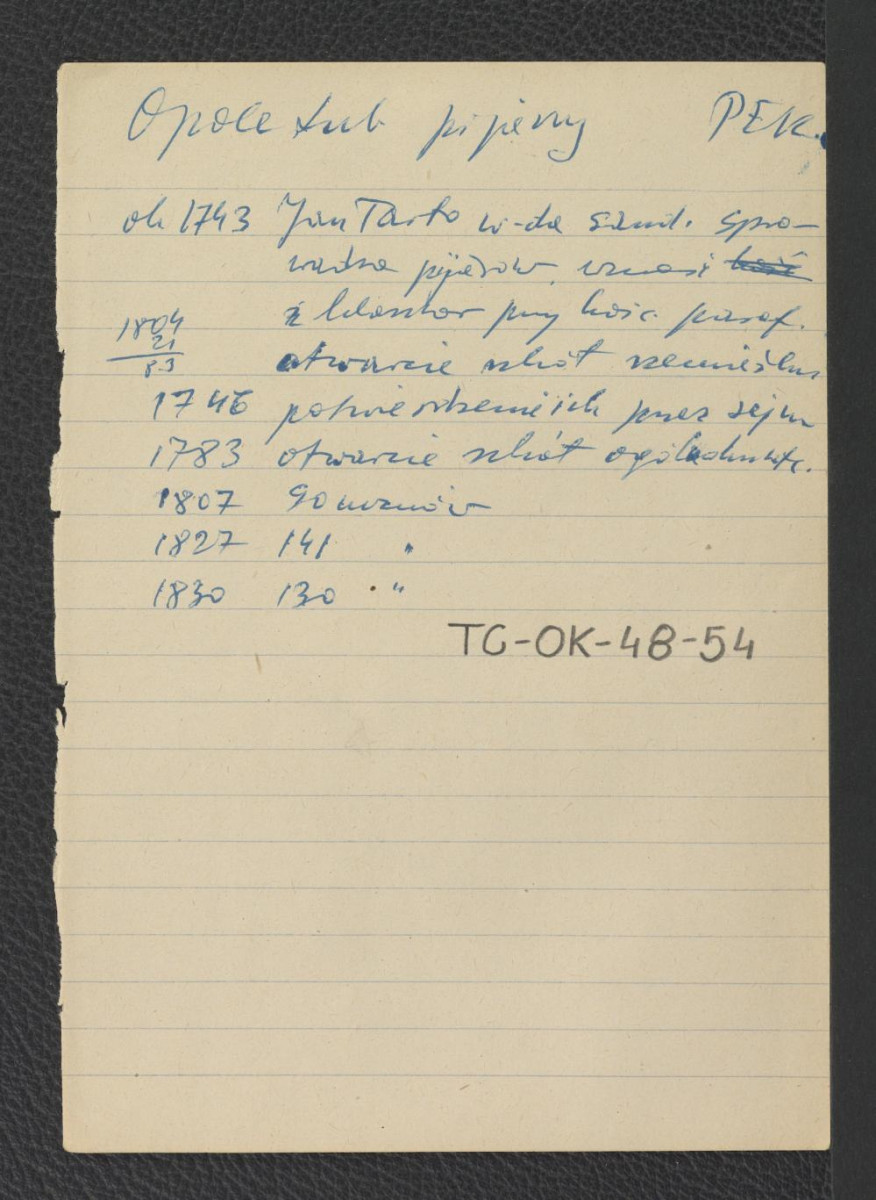 Opole Lub pijarzy PEK.
ok 1743 Jan Tarło w-da sand. spro-
wadza pijarów, wznosi kość
i klasztor przy kośc. paraf.
1804
21
83
otwarcie szkół rzemieśln
1746 potwierdzenie ich przez sejm
1783 otwarcie szkół ogólnokształc.
1807 90 uczniów
1827 141 "
1830 130 "
TG-OK-48-54